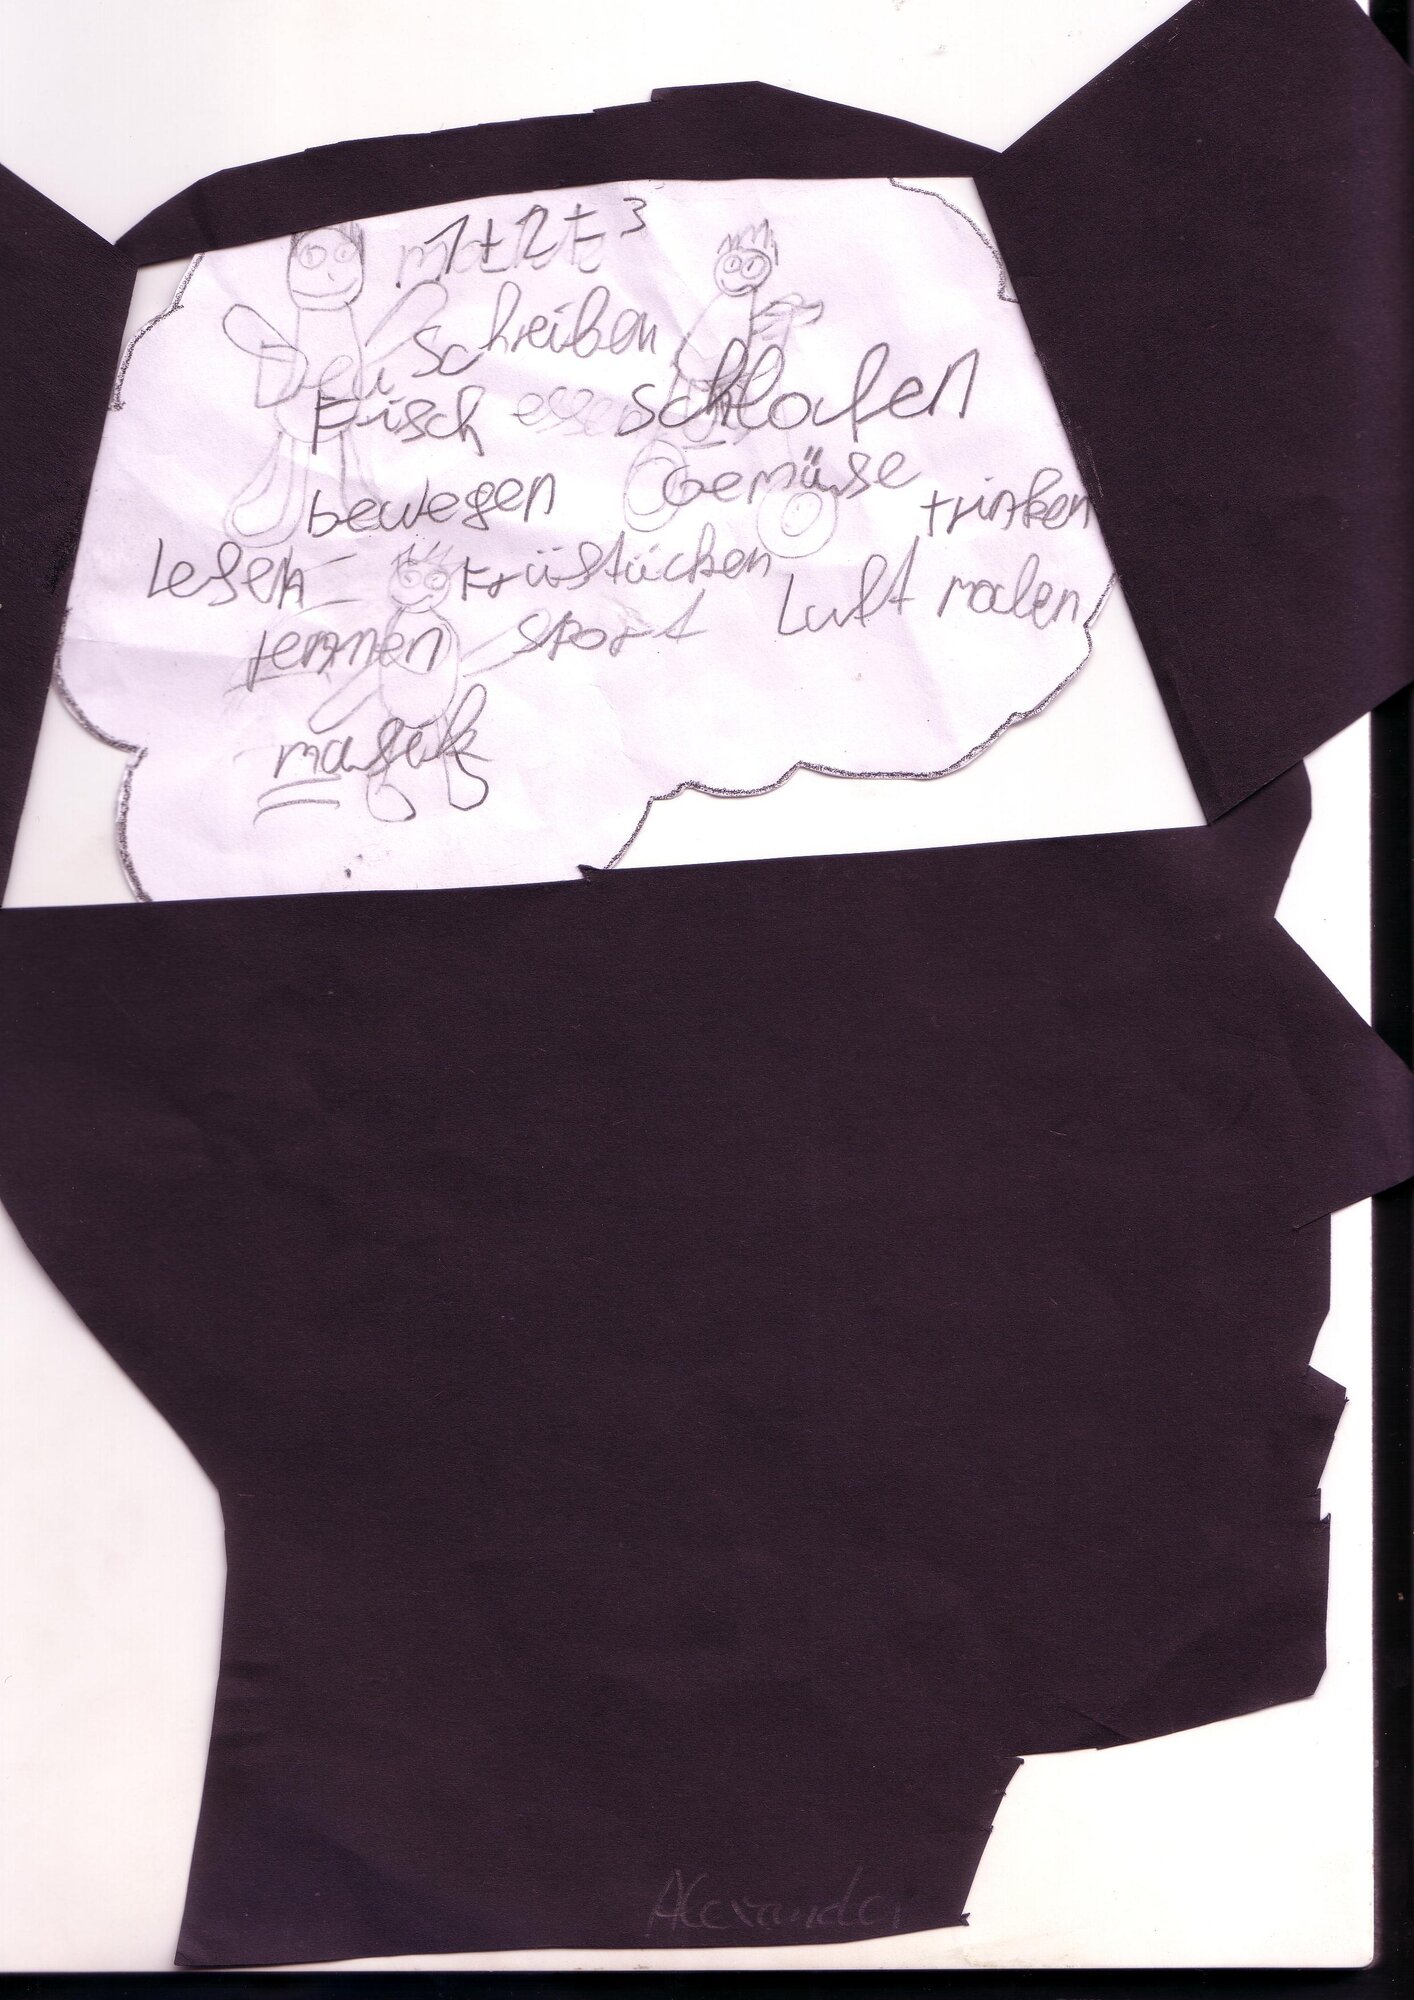 1+2=3
schreiben
Fisch essen schlafen
bewegen Gemüse trinken
Lesen Früstücken Luft malen
lernen sport
musik
Alexander